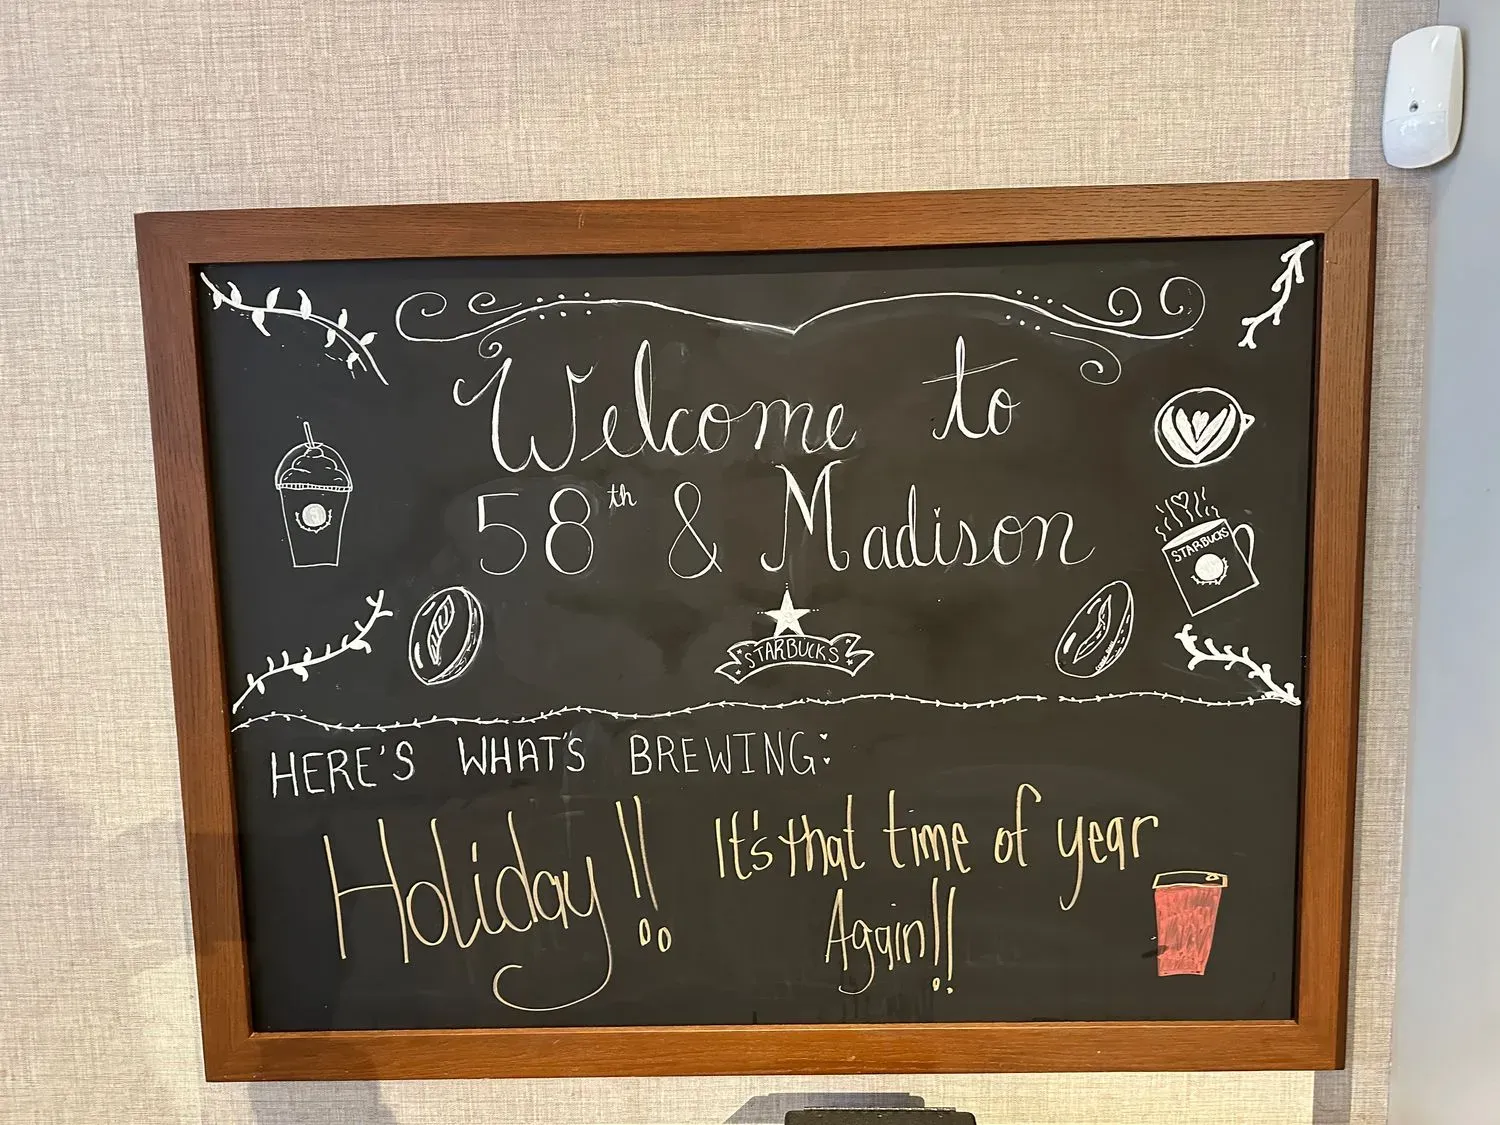 Welcome to
58th & Madison
STARBUCKS
STARBUCKS
HERE'S WHAT'S BREWING:
Holiday!!
It's that time of year
Again!!